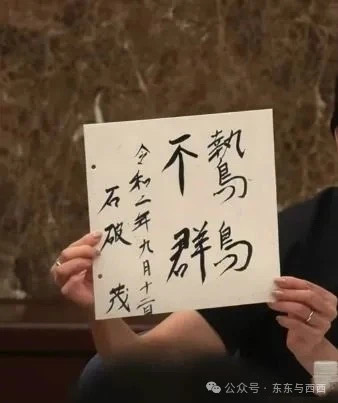 鷙鳥
不群
令和二年九月十二日
石破茂
公众号 · 东东与西西